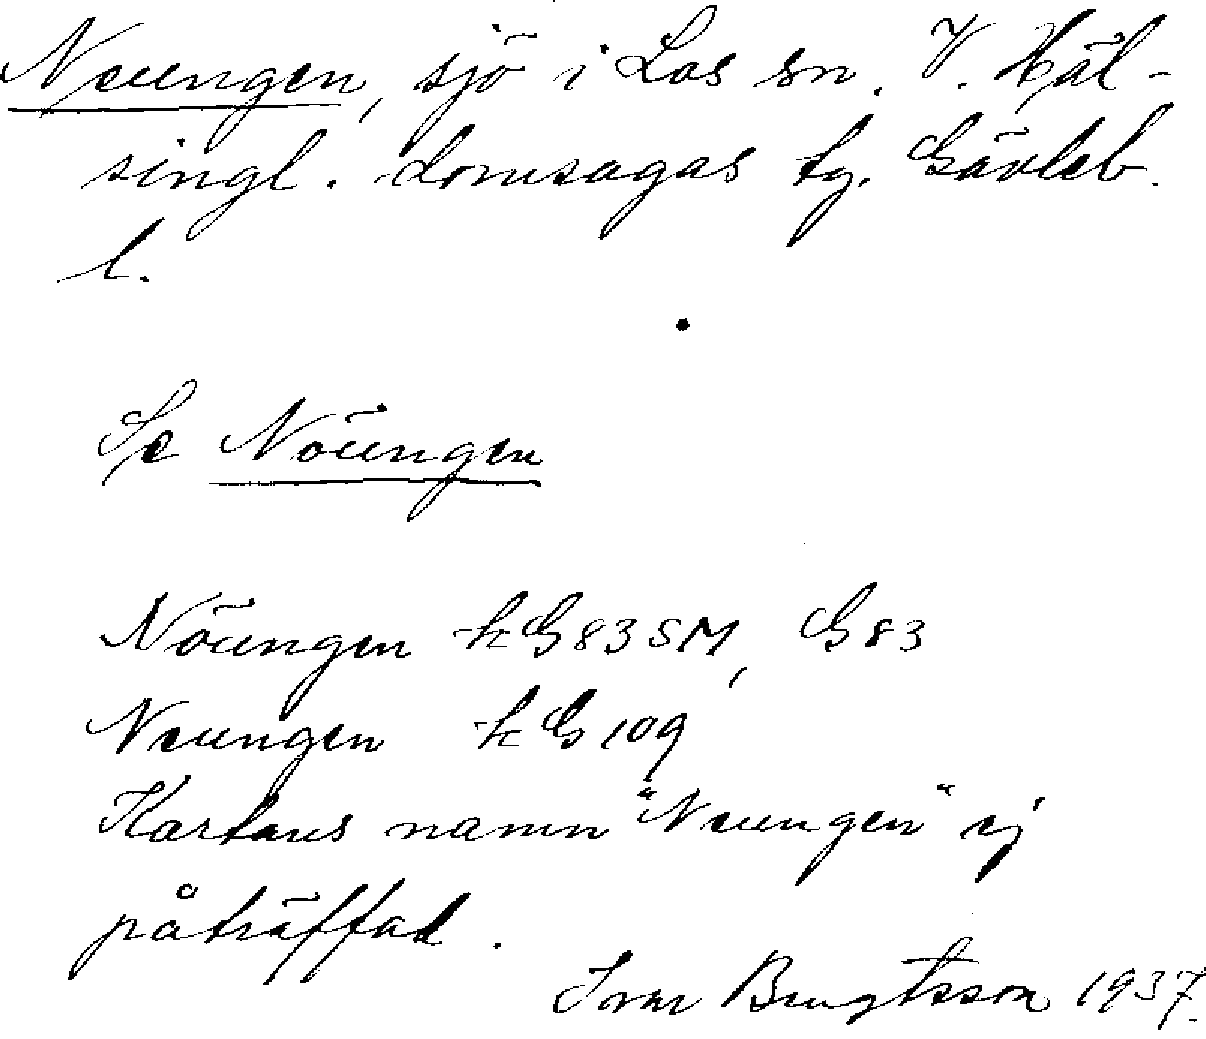 Neungen, sjö i Los sn. V. Häl-
singl. domsagas tg. Gävleb.
l.
Se Nöungen
Nöungen kG83SM, G83
Neungen kG109
Kartans namn "Neungen" ej
påträffad.
Ivar Bengtsson 1937.